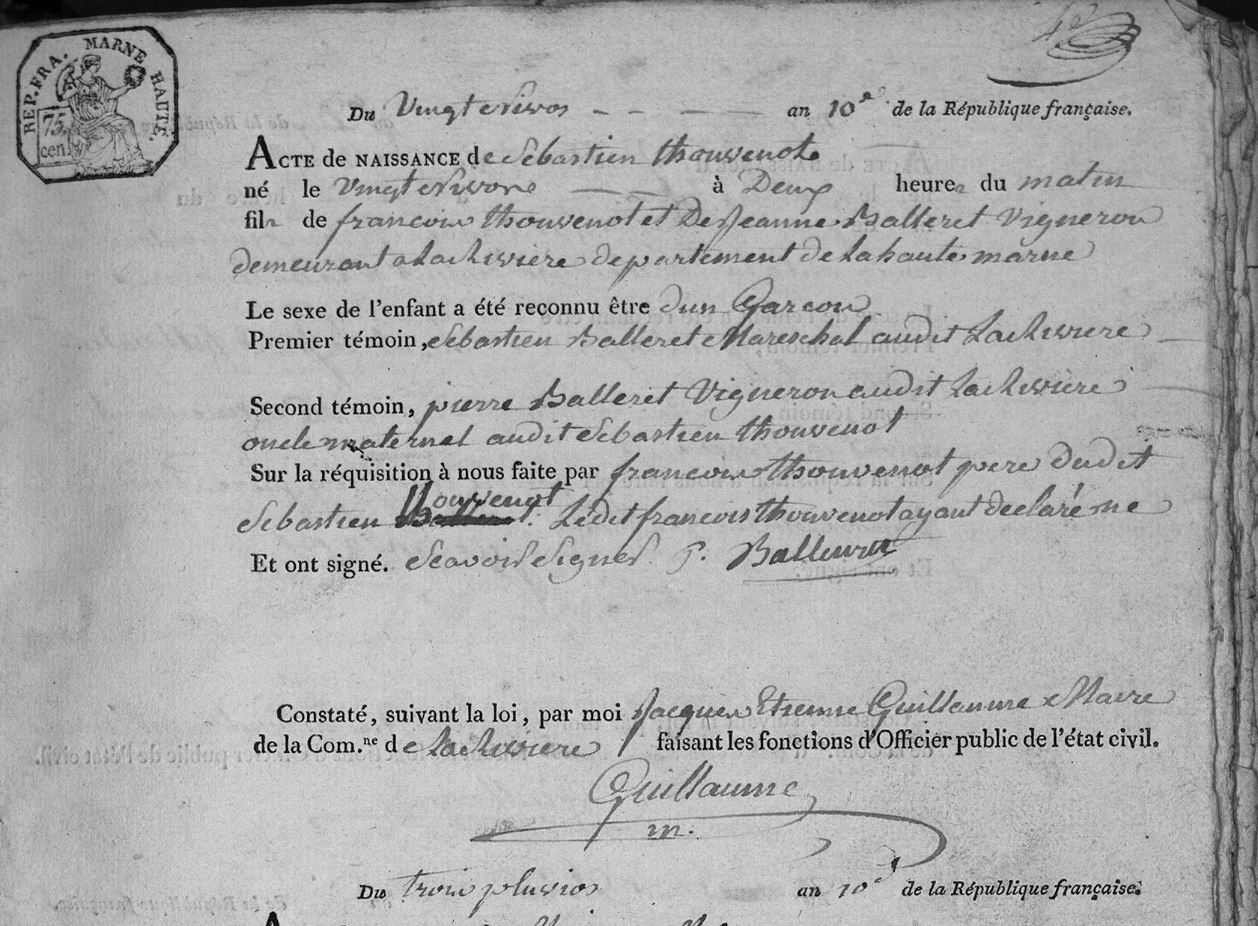 REP. FRA. MARNE HAUTE.
75.
cen.
Du Vingt Nivos an 10e de la République française.
ACTE de NAISSANCE de Sebastien thouvenot
né le Vingt Nivos à Deux heures du matin
fils de francois thouvenot et De Jeanne Balleret Vigneron
demeurant a Lariviere departement de la haute marne
Le sexe de l'enfant a été reconnu être dun Garcon
Premier témoin, sebastien Balleret Mareschal audit Lariviere
Second témoin, pierre Balleret Vigneron audit Lariviere
oncle maternel audit sebastien thouvenot
Sur la réquisition à nous faite par francois thouvenot pere dudit
Sebastien thouvenot. Ledit francois thouvenot ayant declaré ne
Et ont signé. Scavoir Signer. P. Balleret
Constaté, suivant la loi, par moi Jacques Etienne Guillaume Maire
de la Com.ne de Lariviere faisant les fonctions d'Officier public de l'état civil.
Guillaume
m.
Du trois pluvios an 10e de la République française.